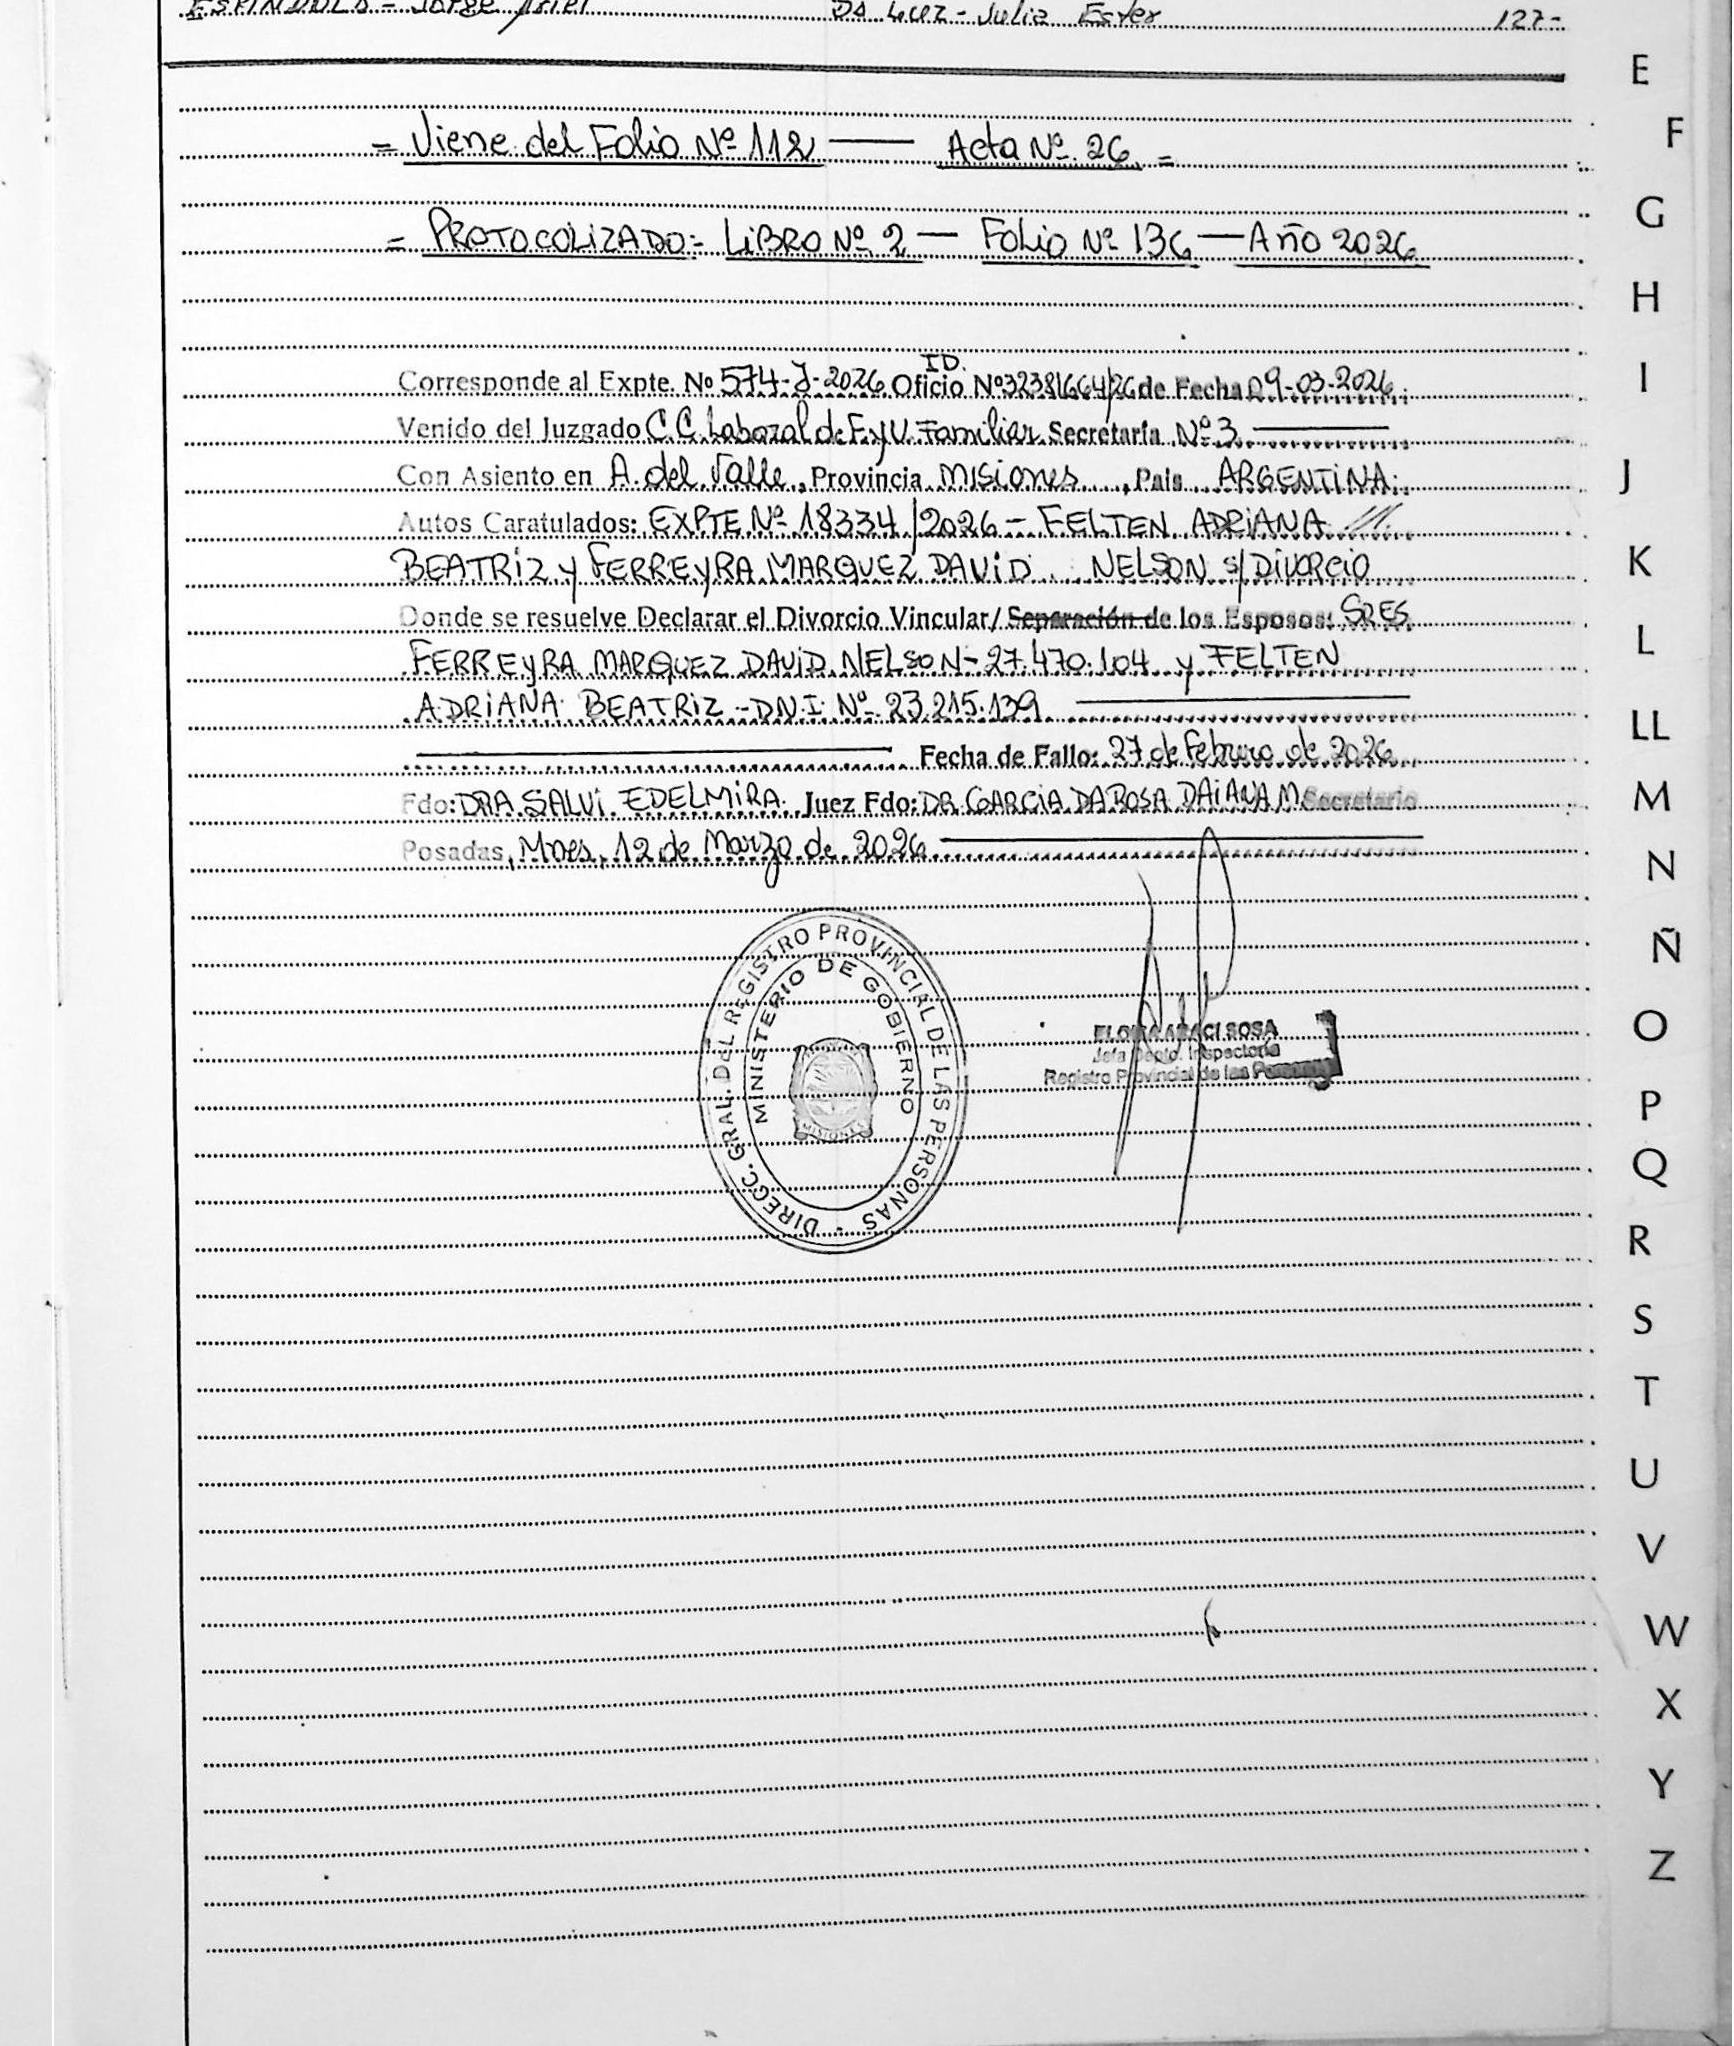 ESPINDOLA - Jorge Ariel Da Luz - Julia Ester 127-
= Viene del Folio Nº 112 —— Acta Nº 26 =
= PROTOCOLIZADO:- LiBRO Nº 2 — Folio Nº 136 — Año 2026
ID.
Corresponde al Expte. Nº 574-J-2026 Oficio Nº32381664/26 de Fecha 09-03-2026
Venido del Juzgado C.C. Laboral d: F. y V. Familiar Secretaría Nº 3
Con Asiento en A. del Valle, Provincia Misiones, País ARGENTINA
Autos Caratulados: EXPTE Nº 18334/2026 - FELTEN ADRIANA ///
BEATRIZ y FERREYRA MARQUEZ DAVID NELSON s/ DiVORCiO
Donde se resuelve Declarar el Divorcio Vincular/ Separación de los Esposos: SRES
FERREYRA MARQUEZ DAVID NELSON - 27.470.104 y FELTEN
ADRIANA BEATRIZ - D.N.I. Nº 23.215.139
Fecha de Fallo: 27 de Febrero de 2026
Fdo: DRA. SALVI EDELMIRA Juez Fdo: DR GARCIA DA ROSA DAIANA M. Secretario
Posadas, Mnes, 12 de Marzo de 2026
DIRECC. GRAL. DEL REGISTRO PROVINCIAL DE LAS PERSONAS -
MINISTERIO DE GOBIERNO
MISIONES
ARACI SOSA
Jefa Depto. Inspectoría
Registro Provincial de las Personas
E
F
G
H
I
J
K
L
LL
M
N
Ñ
O
P
Q
R
S
T
U
V
W
X
Y
Z